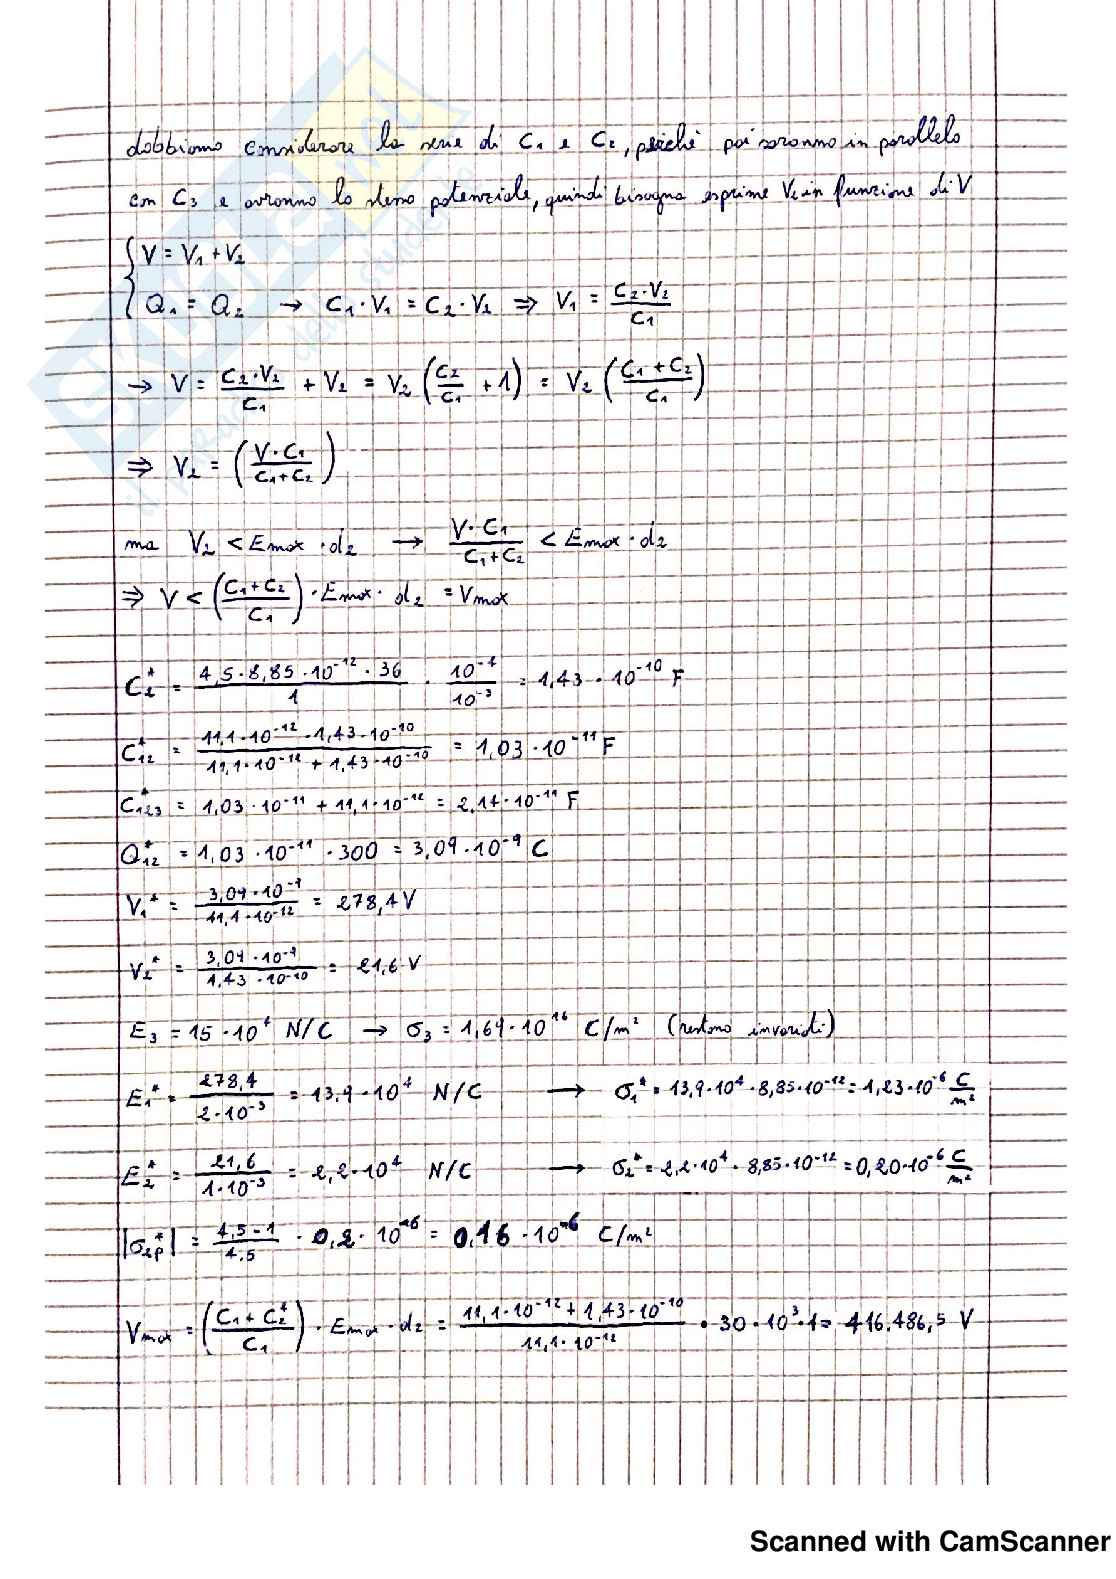 dobbiamo considerare la serie di C₁ e C₂, perchè poi saranno in parallelo
con C₃ e avranno lo stesso potenziale, quindi bisogna esprime V₂ in funzione di V
V = V₁ + V₂
Q₁ = Q₂ → C₁·V₁ = C₂·V₂ ⇒ V₁ = C₂·V₂ / C₁
→ V = C₂·V₂ / C₁ + V₂ = V₂ (C₂/C₁ + 1) = V₂ ((C₁ + C₂)/C₁)
⇒ V₂ = (V·C₁ / (C₁+C₂))
ma V₂ < Emax · d₂ → V·C₁ / (C₁+C₂) < Emax · d₂
⇒ V < ((C₁+C₂)/C₁) · Emax · d₂ = Vmax
C₂* = 4,5·8,85·10⁻¹²·36 / 1 · 10⁻⁴ / 10⁻³ = 1,43 · 10⁻¹⁰ F
C₁₂* = 11,1·10⁻¹²·1,43·10⁻¹⁰ / (11,1·10⁻¹² + 1,43·10⁻¹⁰) = 1,03 · 10⁻¹¹ F
C₁₂₃* = 1,03·10⁻¹¹ + 11,1·10⁻¹² = 2,14·10⁻¹¹ F
Q₁₂* = 1,03·10⁻¹¹ · 300 = 3,09·10⁻⁹ C
V₁* = 3,09·10⁻⁹ / 11,1·10⁻¹² = 278,4 V
V₂* = 3,09·10⁻⁹ / 1,43·10⁻¹⁰ = 21,6 V
E₃ = 15·10⁴ N/C → σ₃ = 1,69·10¹⁶ C/m² (restano invariati)
E₁* = 278,4 / 2·10⁻³ = 13,9·10⁴ N/C → σ₁* = 13,9·10⁴·8,85·10⁻¹² = 1,23·10⁻⁶ C/m²
E₂* = 21,6 / 1·10⁻³ = 2,2·10⁴ N/C → σ₂* = 2,2·10⁴·8,85·10⁻¹² = 0,20·10⁻⁶ C/m²
|σ₂p*| = (4,5-1)/4,5 · 0,2·10⁻⁶ = 0,16·10⁻⁶ C/m²
Vmax = ((C₁+C₂*)/C₁) · Emax·d₂ = (11,1·10⁻¹² + 1,43·10⁻¹⁰)/11,1·10⁻¹² · 30·10³·1 = 416.486,5 V
Scanned with CamScanner